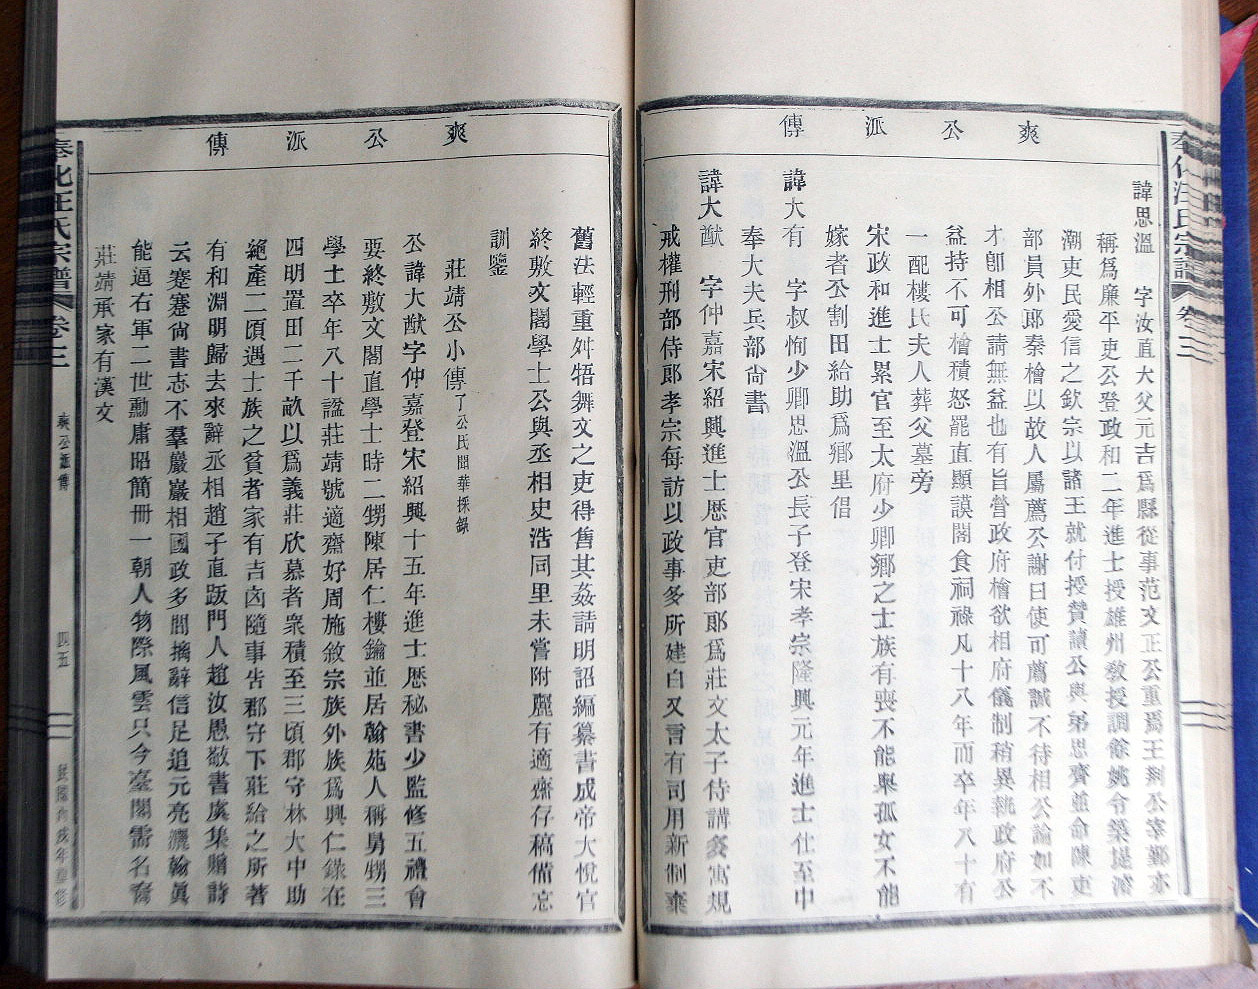 爽公派傳
諱思溫 字汝直大父元吉爲縣從事范文正公重焉王荆公宰鄞亦
稱爲廉平吏公登政和二年進士授雄州教授調餘姚令築堤濬
潮吏民愛信之欽宗以諸王就付授贊讀公與弟思齊並命陳吏
部員外郞秦檜以故人屬薦公謝曰使可薦誠不待相公論如不
才卽相公請無益也有旨營政府檜欲相府儀制稍異執政府公
益持不可檜積怒罷直顯謨閣食祠祿凡十八年而卒年八十有
一配樓氏夫人葬父墓旁
宋政和進士累官至太府少卿鄉之士族有喪不能舉孤女不能
嫁者公割田給助爲鄉里倡
諱大有 字叔恂少卿思溫公長子登宋孝宗隆興元年進士仕至中
奉大夫兵部尙書
諱大猷 字仲嘉宋紹興進士歷官吏部郞爲莊文太子侍講多寓規
戒權刑部侍郞孝宗每訪以政事多所建白又言有司用新制棄
爽公派傳
舊法輕重舛牾舞文之吏得售其姦請明詔編纂書成帝大悅官
終敷文閣學士公與丞相史浩同里未嘗附麗有適齋存稿備忘
訓鑒
莊靖公小傳 了公氏聞華採錄
公諱大猷字仲嘉登宋紹興十五年進士歷秘書少監修五禮會
要終敷文閣直學士時二甥陳居仁樓鑰並居翰苑人稱舅甥三
學士卒年八十諡莊靖號適齋好周施敘宗族外族爲興仁錄在
四明置田二千畝以爲義莊欣慕者衆積至三頃郡守林大中助
絕產二頃遇士族之貧者家有吉凶隨事告郡守下莊給之所著
有和淵明歸去來辭丞相趙子直跋門人趙汝愚敬書虞集贈詩
云蹇蹇尙書志不羣巖巖相國政多聞摛辭信足追元亮灑翰眞
能逼右軍二世勳庸昭簡冊一朝人物際風雲只今臺閣需名裔
莊靖承家有漢文
奉化汪氏宗譜 卷三
爽公派傳
四五